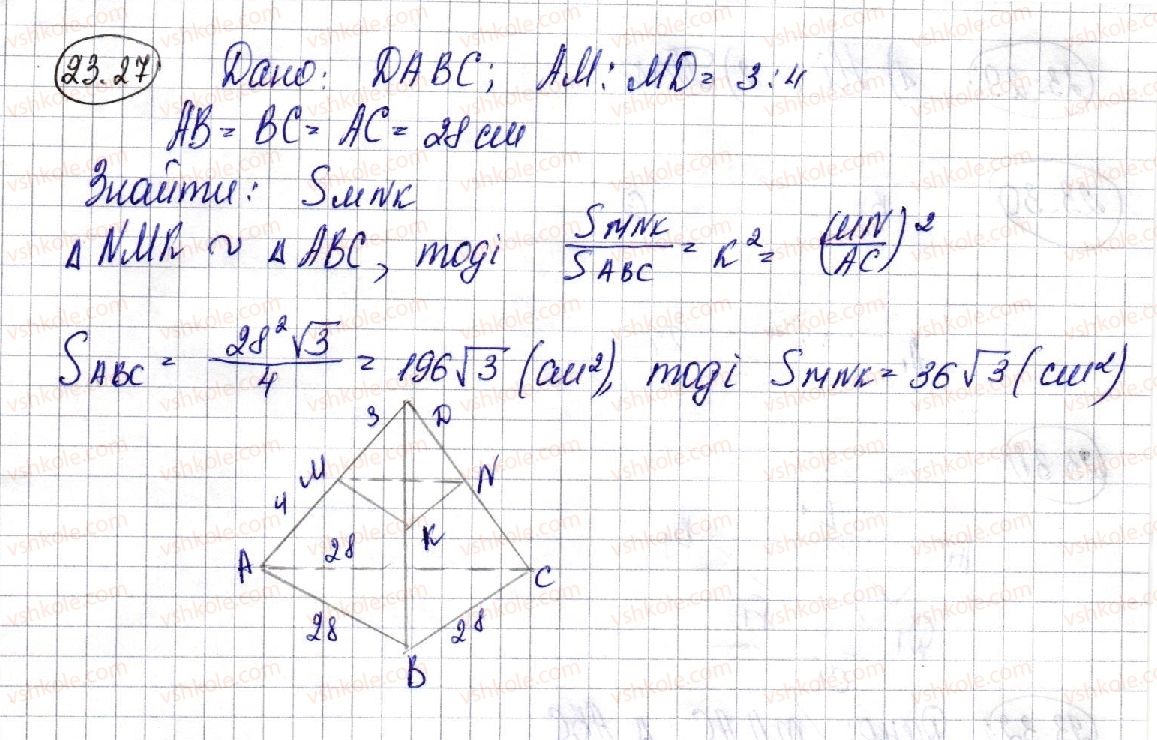 23.27 Дано: DABC; AM:MD = 3:4
AB = BC = AC = 28 см
Знайти: S_MNK
△NMK ~ △ABC, тоді S_MNK/S_ABC = K² = (MN/AC)²
S_ABC = 28²√3/4 = 196√3 (см²), тоді S_MNK = 36√3 (см²)
3 D
M N
4
K
A 28 C
28 28
B